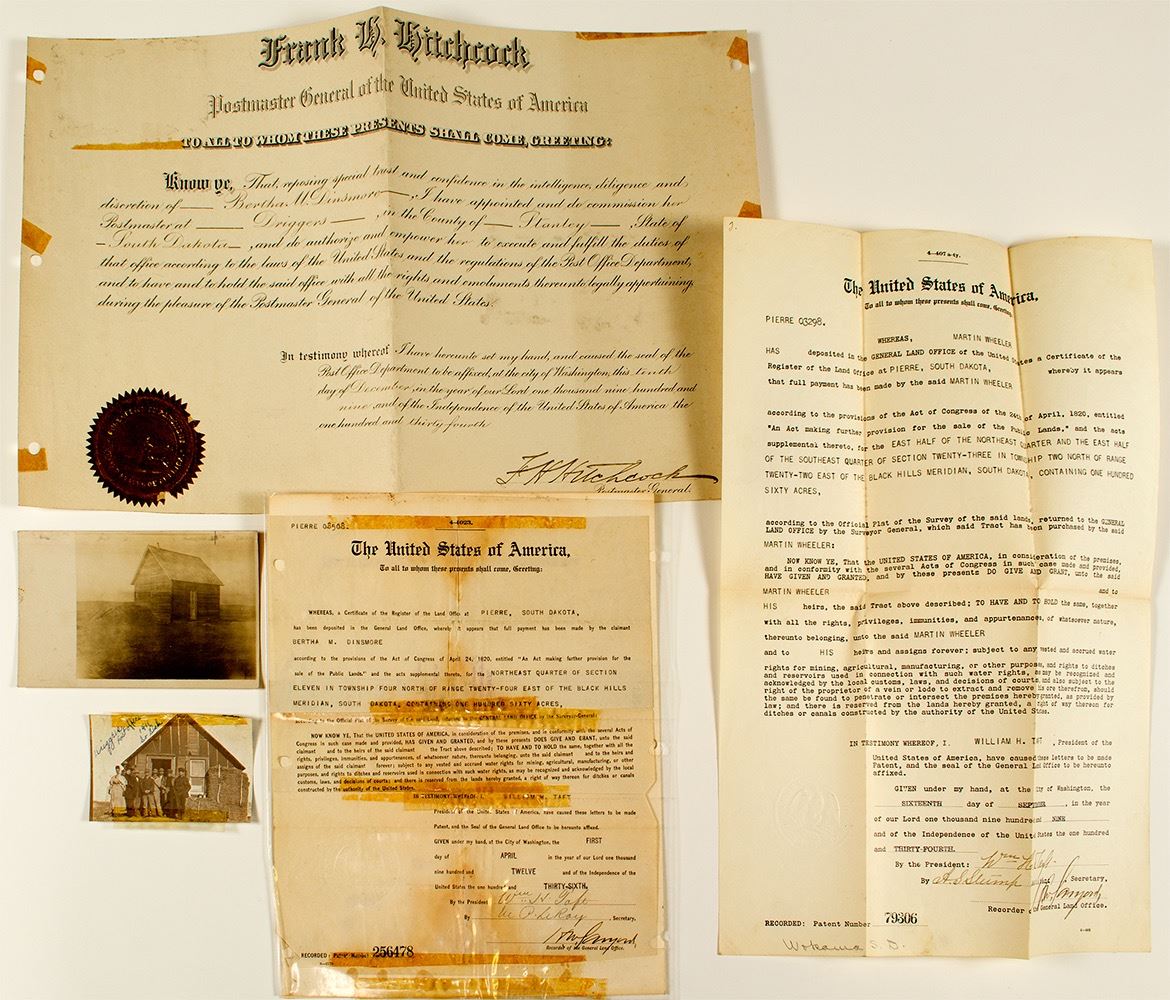 Frank H. Hitchcock
Postmaster General of the United States of America
TO ALL TO WHOM THESE PRESENTS SHALL COME, GREETING:
Know ye, That, reposing special trust and confidence in the intelligence, diligence and
discretion of Bertha M. Dinsmore, I have appointed and do commission her
Postmaster at Driggers, in the County of Stanley, State of
South Dakota, and do authorize and empower her to execute and fulfill the duties of
that office according to the laws of the United States and the regulations of the Post Office Department,
and to have and to hold the said office with all the rights and emoluments thereunto legally appertaining,
during the pleasure of the Postmaster General of the United States.
In testimony whereof I have hereunto set my hand, and caused the seal of the
Post Office Department to be affixed, at the city of Washington, this tenth
day of December, in the year of our Lord one thousand nine hundred and
nine and of the Independence of the United States of America the
one hundred and thirty-fourth
F H Hitchcock
Postmaster General.
4-1023.
The United States of America,
To all to whom these presents shall come, Greeting:
WHEREAS, a Certificate of the Register of the Land Office at PIERRE, SOUTH DAKOTA,
has been deposited in the General Land Office, whereby it appears that full payment has been made by the claimant
BERTHA M. DINSMORE
according to the provisions of the Act of Congress of April 24, 1820, entitled "An Act making further provision for the
sale of the Public Lands," and the acts supplemental thereto, for the NORTHEAST QUARTER OF SECTION
ELEVEN IN TOWNSHIP FOUR NORTH OF RANGE TWENTY-FOUR EAST OF THE BLACK HILLS
MERIDIAN, SOUTH DAKOTA, CONTAINING ONE HUNDRED SIXTY ACRES,
according to the Official Plat of the Survey of the said Land, returned to the GENERAL LAND OFFICE by the Surveyor-General:
NOW KNOW YE, That the UNITED STATES OF AMERICA, in consideration of the premises, and in conformity with the several Acts of
Congress in such case made and provided, HAS GIVEN AND GRANTED, and by these presents DOES GIVE AND GRANT, unto the said
claimant and to the heirs of the said claimant the Tract above described; TO HAVE AND TO HOLD the same, together with all the
rights, privileges, immunities, and appurtenances, of whatsoever nature, thereunto belonging, unto the said claimant and to the heirs and
assigns of the said claimant forever; subject to any vested and accrued water rights for mining, agricultural, manufacturing, or other
purposes, and rights to ditches and reservoirs used in connection with such water rights, as may be recognized and acknowledged by the local
customs, laws, and decisions of courts; and there is reserved from the lands hereby granted, a right of way thereon for ditches or canals
constructed by the authority of the United States.
IN TESTIMONY WHEREOF, I, WILLIAM H. TAFT
President of the United States of America, have caused these letters to be made
Patent, and the Seal of the General Land Office to be hereunto affixed.
GIVEN under my hand, at the City of Washington, the FIRST
day of APRIL in the year of our Lord one thousand
nine hundred and TWELVE and of the Independence of the
United States the one hundred and THIRTY-SIXTH.
By the President: Wm H. Taft
By M. P. LeRoy, Secretary,
Recorder of the General Land Office.
RECORDED: Patent Number 256478
4-407 a-ty.
The United States of America,
To all to whom these presents shall come, Greeting:
PIERRE 03298.
WHEREAS, MARTIN WHEELER
HAS deposited in the GENERAL LAND OFFICE of the United States a Certificate of the
Register of the Land Office at PIERRE, SOUTH DAKOTA, whereby it appears
that full payment has been made by the said MARTIN WHEELER
according to the provisions of the Act of Congress of the 24th of April, 1820, entitled
"An Act making further provision for the sale of the Public Lands," and the acts
supplemental thereto, for the EAST HALF OF THE NORTHEAST QUARTER AND THE EAST HALF
OF THE SOUTHEAST QUARTER OF SECTION TWENTY-THREE IN TOWNSHIP TWO NORTH OF RANGE
TWENTY-TWO EAST OF THE BLACK HILLS MERIDIAN, SOUTH DAKOTA, CONTAINING ONE HUNDRED
SIXTY ACRES,
according to the Official Plat of the Survey of the said lands, returned to the GENERAL
LAND OFFICE by the Surveyor General, which said Tract has been purchased by the said
MARTIN WHEELER:
NOW KNOW YE, That the UNITED STATES OF AMERICA, in consideration of the premises,
and in conformity with the several Acts of Congress in such case made and provided,
HAVE GIVEN AND GRANTED, and by these presents DO GIVE AND GRANT, unto the said
MARTIN WHEELER and to
HIS heirs, the said Tract above described; TO HAVE AND TO HOLD the same, together
with all the rights, privileges, immunities, and appurtenances, of whatsoever nature,
thereunto belonging, unto the said MARTIN WHEELER
and to HIS heirs and assigns forever; subject to any vested and accrued water
rights for mining, agricultural, manufacturing, or other purposes, and rights to ditches
and reservoirs used in connection with such water rights, as may be recognized and
acknowledged by the local customs, laws, and decisions of courts, and also subject to the
right of the proprietor of a vein or lode to extract and remove his ore therefrom, should
the same be found to penetrate or intersect the premises hereby granted, as provided by
law; and there is reserved from the lands hereby granted, a right of way thereon for
ditches or canals constructed by the authority of the United States.
IN TESTIMONY WHEREOF, I, WILLIAM H. TAFT, President of the
United States of America, have caused these letters to be made
Patent, and the seal of the General Land Office to be hereunto
affixed.
GIVEN under my hand, at the City of Washington, the
SIXTEENTH day of SEPTEMBER, in the year
of our Lord one thousand nine hundred and NINE
and of the Independence of the United States the one hundred
and THIRTY-FOURTH.
By the President: Wm H Taft
By Secretary.
Recorder of General Land Office.
RECORDED: Patent Number 79306